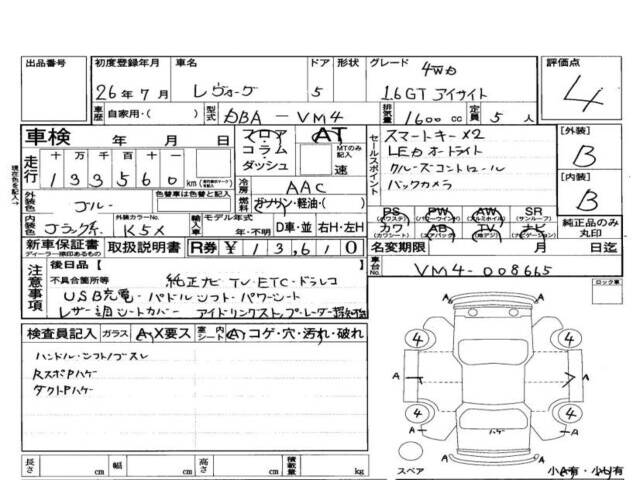 出品番号 初度登録年月 車名 ドア 形状 グレード 評価点
26年7月 レヴォーグ 5 4WD 1.6GT アイサイト 4
車歴 自家用・( ) 型式 DBA-VM4 排気量 1600 cc 定員 5 人
車検 年 月 日
フロア・コラム・ダッシュ AT MTのみ記入 速
セールスポイント
スマートキー×2
LEDオートライト
クルーズコントロール
バックカメラ
[外装] B
[内装] B
走行 十 万 千 百 十 一
133560 km
冷房 AAC
燃料 ガソリン・軽油・( )
外装色 ブルー 色替車は色替と記入
内装色 ブラック系 外装カラーNo. K5X 輸入車 モデル年式 年・不明 D車・並 右H・左H
PS (パワステ) PW (パワーウインドウ) AW (アルミホイル) SR (サンルーフ)
カワ (カワシート) AB (エアバッグ) TV (地デジ) ナビ (ナビゲーション)
純正品のみ丸印
新車保証書 ディーラー捺印あるもの 取扱説明書 R券 ¥13,610
名変期限 月 日迄
車台No. VM4-008665
現在色を記入→
注意事項
後日品[ ]
不具合箇所等 純正ナビ TV・ETC・ドラレコ
USB充電・パドルシフト・パワーシート
レザー調シートカバー アイドリングストップ・レーダー探知機
ロック車
検査員記入 ガラス A,X要ス 室内シート A コゲ・穴・汚れ・破れ
ハンドル・シフトノブスレ
RスポPハゲ
ダクトPハゲ
4 4 4 4
A A A A A A
ハゲ
長さ cm 幅 cm 高さ cm 積載量 kg
スペア 小A有・小U有